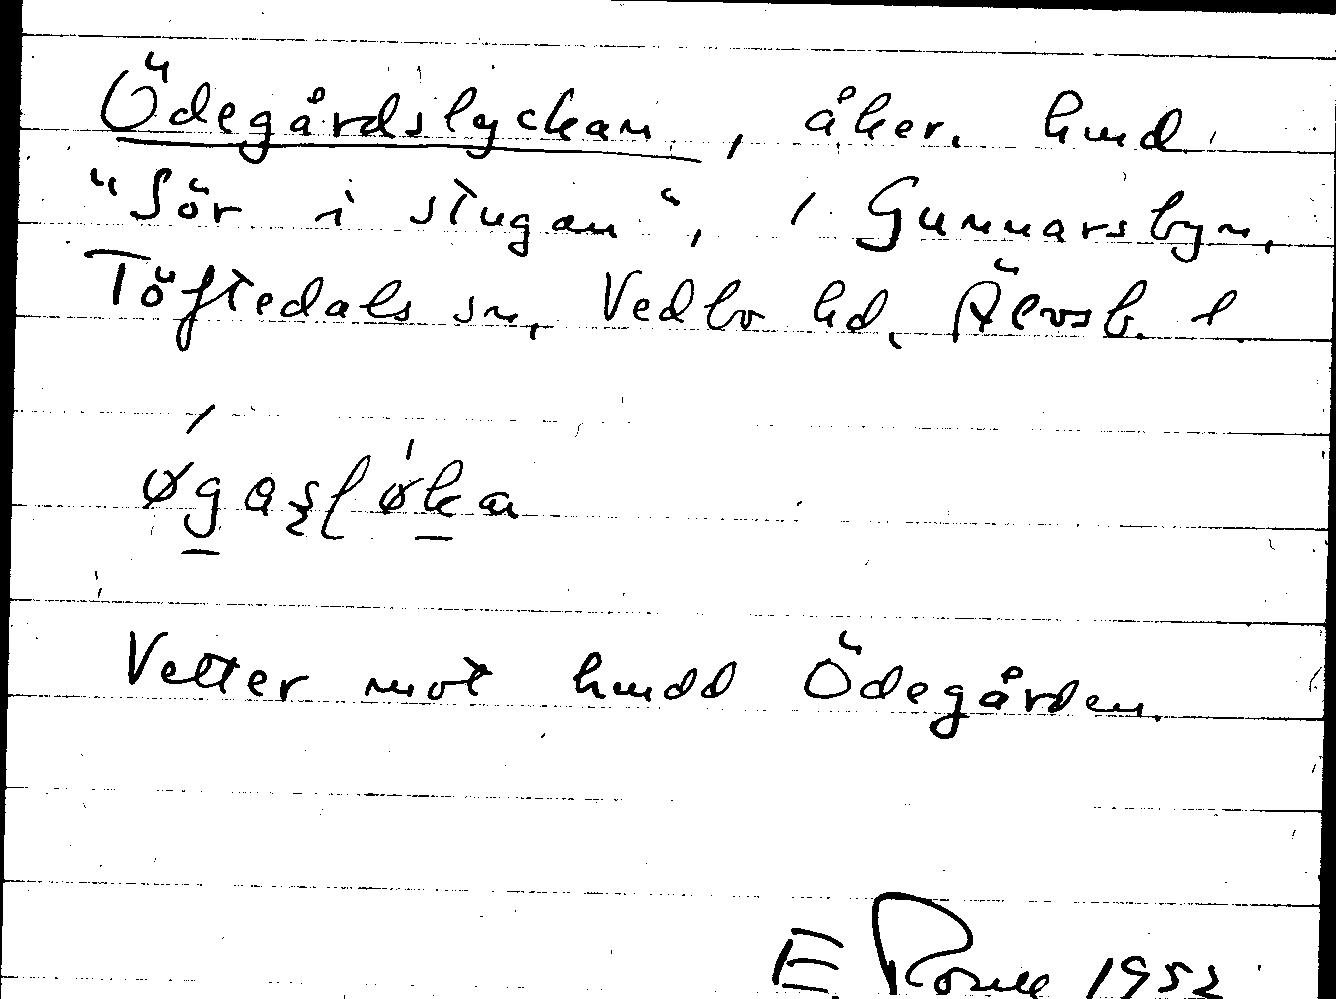 Ödegårdslyckan, åker. hmd.
"Sör i stugan", i Gunnarsbyn,
Töftedals sn, Vedbo hd, Älvsb. l
Vetter mot hmdd Ödegården.
E. 1952